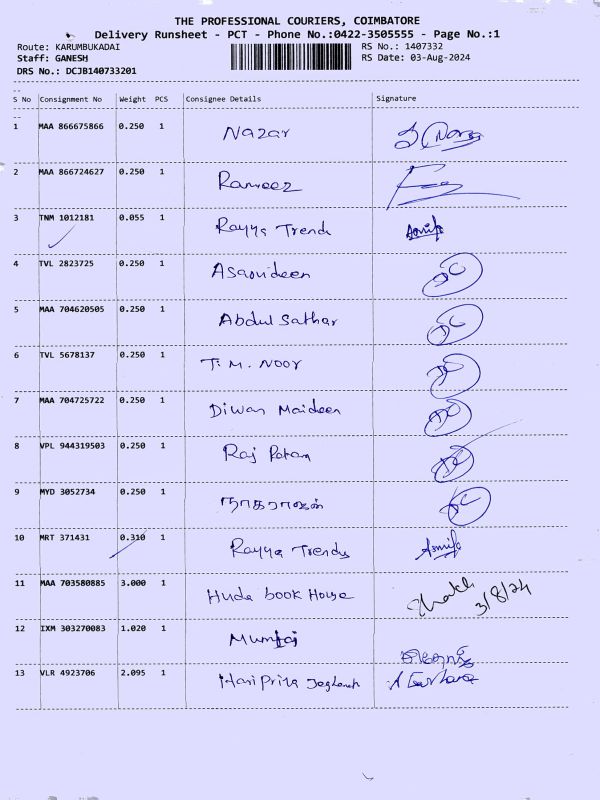 THE PROFESSIONAL COURIERS, COIMBATORE
Delivery Runsheet - PCT - Phone No.:0422-3505555 - Page No.:1
Route: KARUMBUKADAI RS No.: 1407332
Staff: GANESH RS Date: 03-Aug-2024
DRS No.: DCJB140733201
S No Consignment No Weight PCS Consignee Details Signature
1 MAA 866675866 0.250 1 Nazar
2 MAA 866724627 0.250 1 Rameez
3 TNM 1012181 0.055 1 Rayya Trends
4 TVL 2823725 0.250 1 Asanudeen
5 MAA 704620505 0.250 1 Abdul Sathar
6 TVL 5678137 0.250 1 T. M. NOOR
7 MAA 704725722 0.250 1 Diwan Maideen
8 VPL 944319503 0.250 1 Raj
9 MYD 3052734 0.250 1 நாகராஜன்
10 MRT 371431 0.310 1 Rayya Trends
11 MAA 703580885 3.000 1 Huda book House 3/8/24
12 IXM 303270083 1.020 1 Mumtaj
13 VLR 4923706 2.095 1 Hari Priya